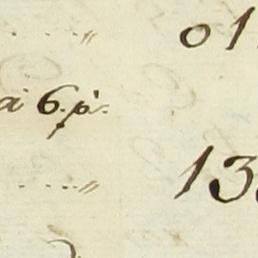 ..... 〃 01
a 6. p.
..... 〃 13